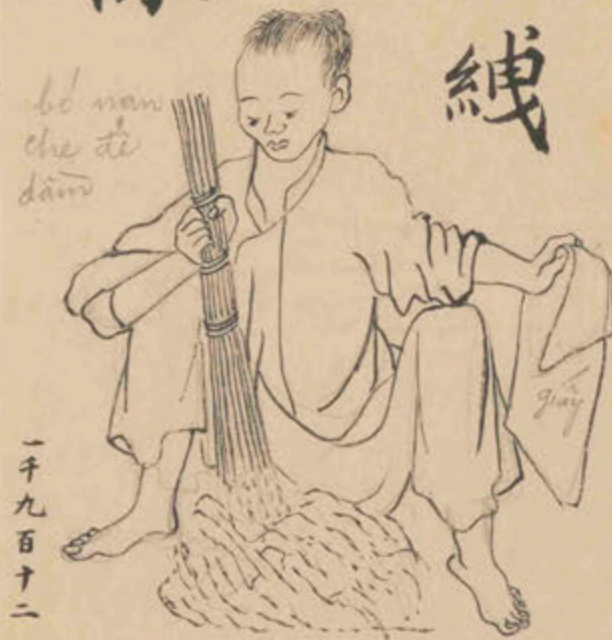 絏
bó nan
che để
dầm
giấy
一千九百十二